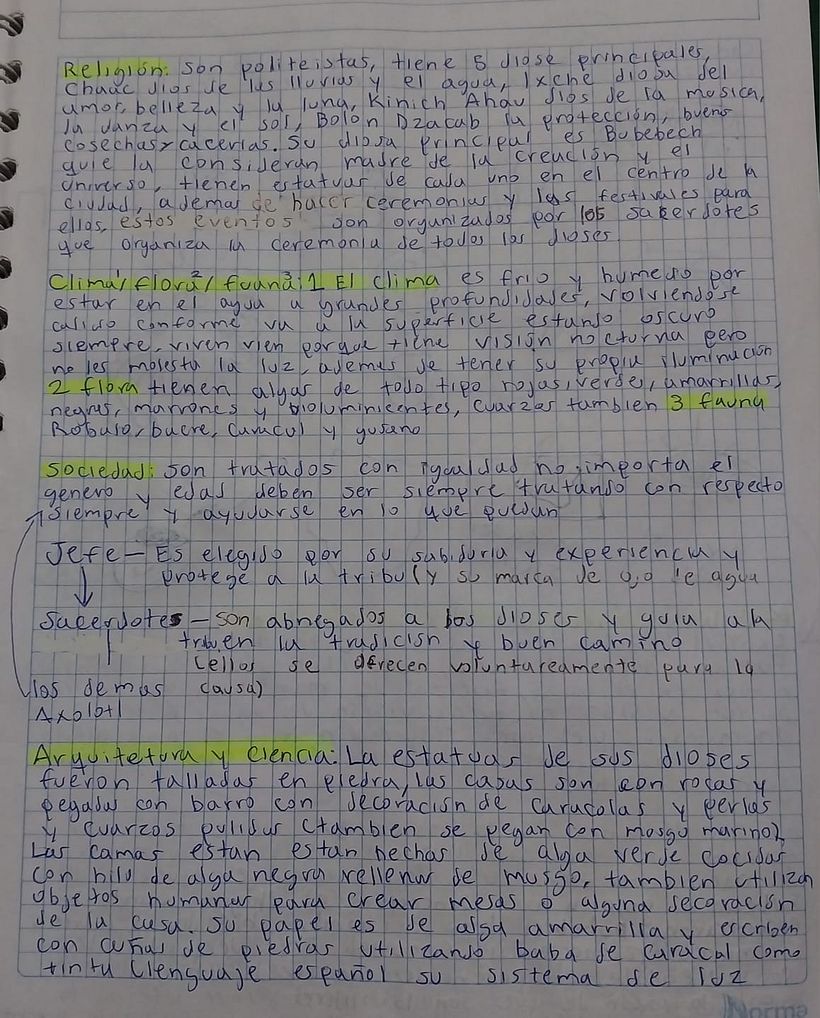 Religión: son politeistas, tiene 5 diose principales,
Chaac dios de las lluvias y el agua, Ixche diosa del
amor, belleza y la luna, Kinich Ahau dios de la musica,
la danza y el sol, Bolon Dzacab la protección, buena
cosechas y cacerias. Su diosa principal es Bubebech
quie la consideran madre de la creación y el
universo, tienen estatuas de cada uno en el centro de la
ciudad, ademas de hacer ceremonias y las festivales para
ellos, estos eventos son organizados por los sacerdotes
que organiza la ceremonia de todos los dioses
Clima¹/flora²/fauna³: 1 El clima es frio y humedo por
estar en el agua a grandes profundidades, volviendose
calido conforme va a la superficie estando oscuro
siempre, viven vien porque tiene visión nocturna pero
no les molesta la luz, ademas de tener su propia iluminación
2 flora tienen algas de todo tipo rojas, verde, amarrillas,
negras, marrones y bioluminicentes, cuarzos tambien 3 fauna
Robalo, bucre, Caracol y gusano
Sociedad: son tratados con igualdad no importa el
genero y edad deben ser siempre tratando con respecto
siempre y ayudarse en lo que puedan
Jefe – Es elegido por su sabiduria y experiencia y
protege a la tribu (y su marca de ojo de agua
Sacerdotes – son abnegados a los dioses y guia a la
tribu en la tradición y buen camino
(ellos se ofrecen voluntareamente para la
los demas causa)
Axolotl
Arquitetura y Ciencia: La estatuas de sus dioses
fueron talladas en piedra, las casas son con rocas y
pegadas con barro con decoración de caracolas y perlas
y cuarzos pulidus (tambien se pegan con mosgo marino).
Las camas estan estan hechas de alga verde cocidas
con hilo de alga negra rellenas de musgo, tambien utilizan
objetos humanos para crear mesas o alguna decoración
de la casa. Su papel es de alga amarrilla y escriben
con cuñas de piedras utilizando baba de caracal como
tinta (lenguaje español su sistema de luz
Norma